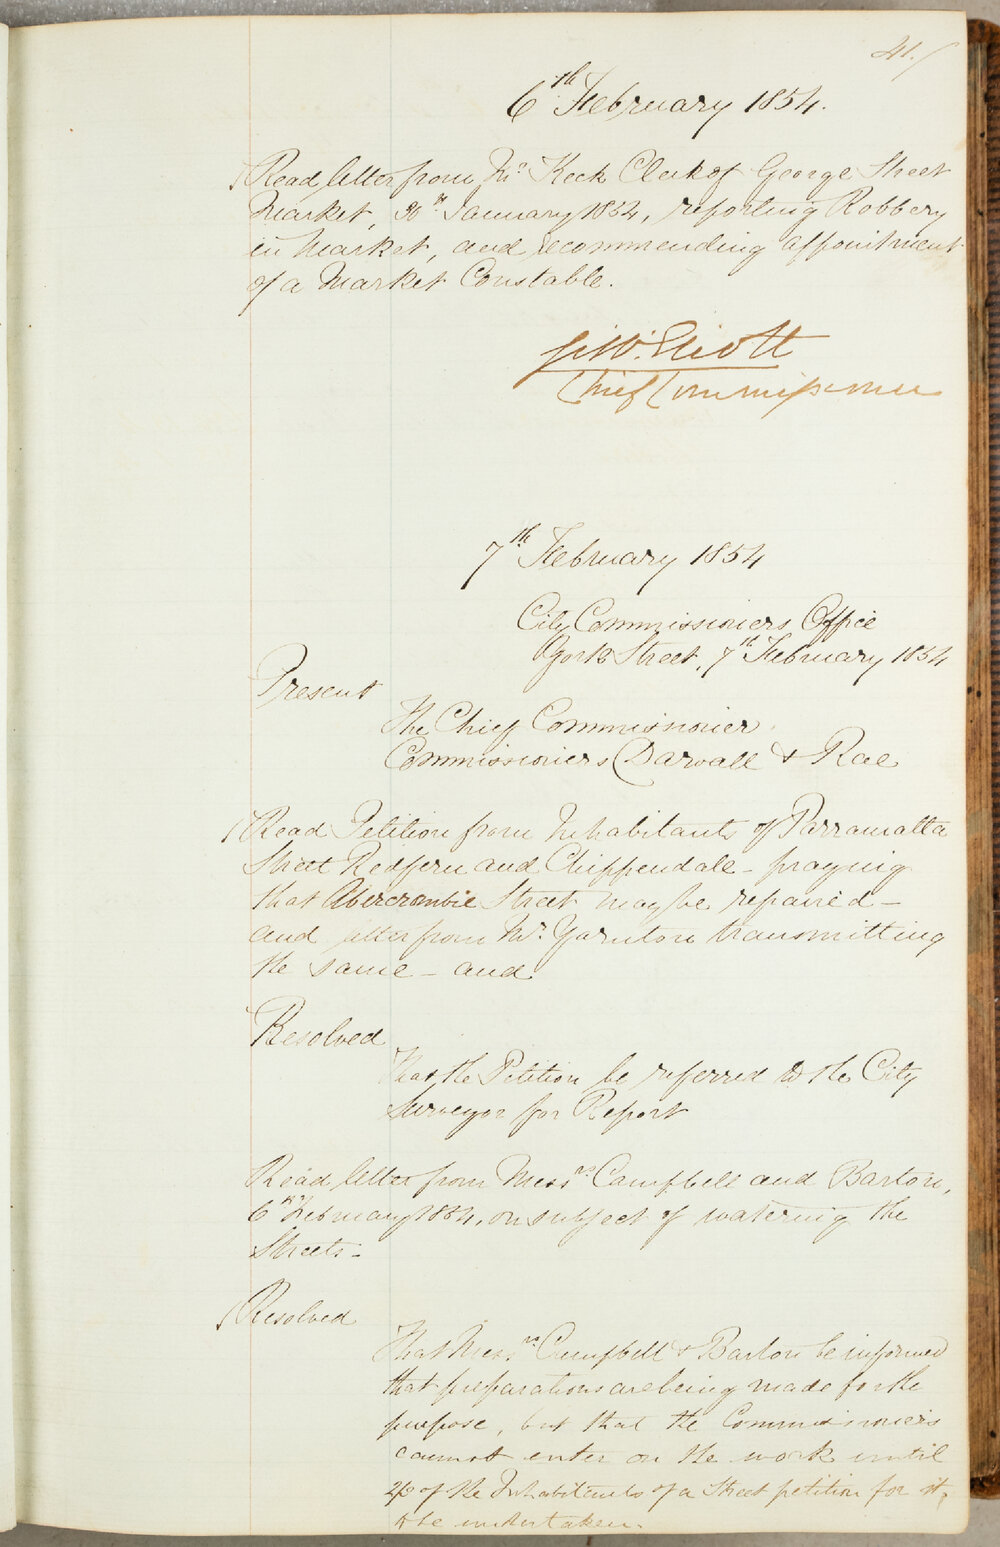 41./
6th February 1854.
Read letter from Mr Keck Clerk of George Street
Market, 30th January 1854, reporting Robbery
in Market, and recommending appointment
of a Market Constable.
G. W. Eliott
Chief Commissioner
7th February 1854
City Commissioners Office
York Street, 7th February 1854
Present
The Chief Commissioner
Commissioners Darvall & Rae
Read Petition from Inhabitants of Parramatta
Street Redfern and Chippendale - praying
that Abercrombie Street may be repaired -
and letter from Mr. Yarnton transmitting
the same - and
Resolved
That the Petition be referred to the City
Surveyor for Report
Read letter from Messrs Campbell and Barton,
6th February 1854, on subject of watering the
Streets -
Resolved
That Messrs Campbell & Barton be informed
that preparations are being made for the
purpose, but that the Commissioners
cannot enter on the work until
2/3 of the Inhabitants of a Street petition for it
to be undertaken.